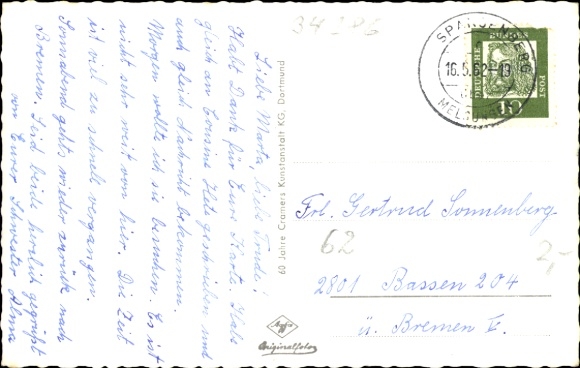 Liebe Marta, liebe Trude!
Habt Dank für Eure Karte. Habe
gleich an Cousine Hete geschrieben und
auch gleich Nachricht bekommen.
Morgen wollte ich sie besuchen. Es ist
nicht sehr weit von hier. Die Zeit
ist viel zu schnell vergangen.
Sonnabend geht's wieder zurück nach
Bremen. Seid beide herzlich gegrüßt
von Eurer Schwester Alma
60 Jahre Cramers Kunstanstalt KG, Dortmund
Agfa
Originalfoto
34
SPANGENBERG
16.5.62-19
MELSUNGEN
DEUTSCHE BUNDESPOST
10
Frl. Gertrud Sonnenberg
62
2,-
2801 Bassen 204
ü. Bremen 5.